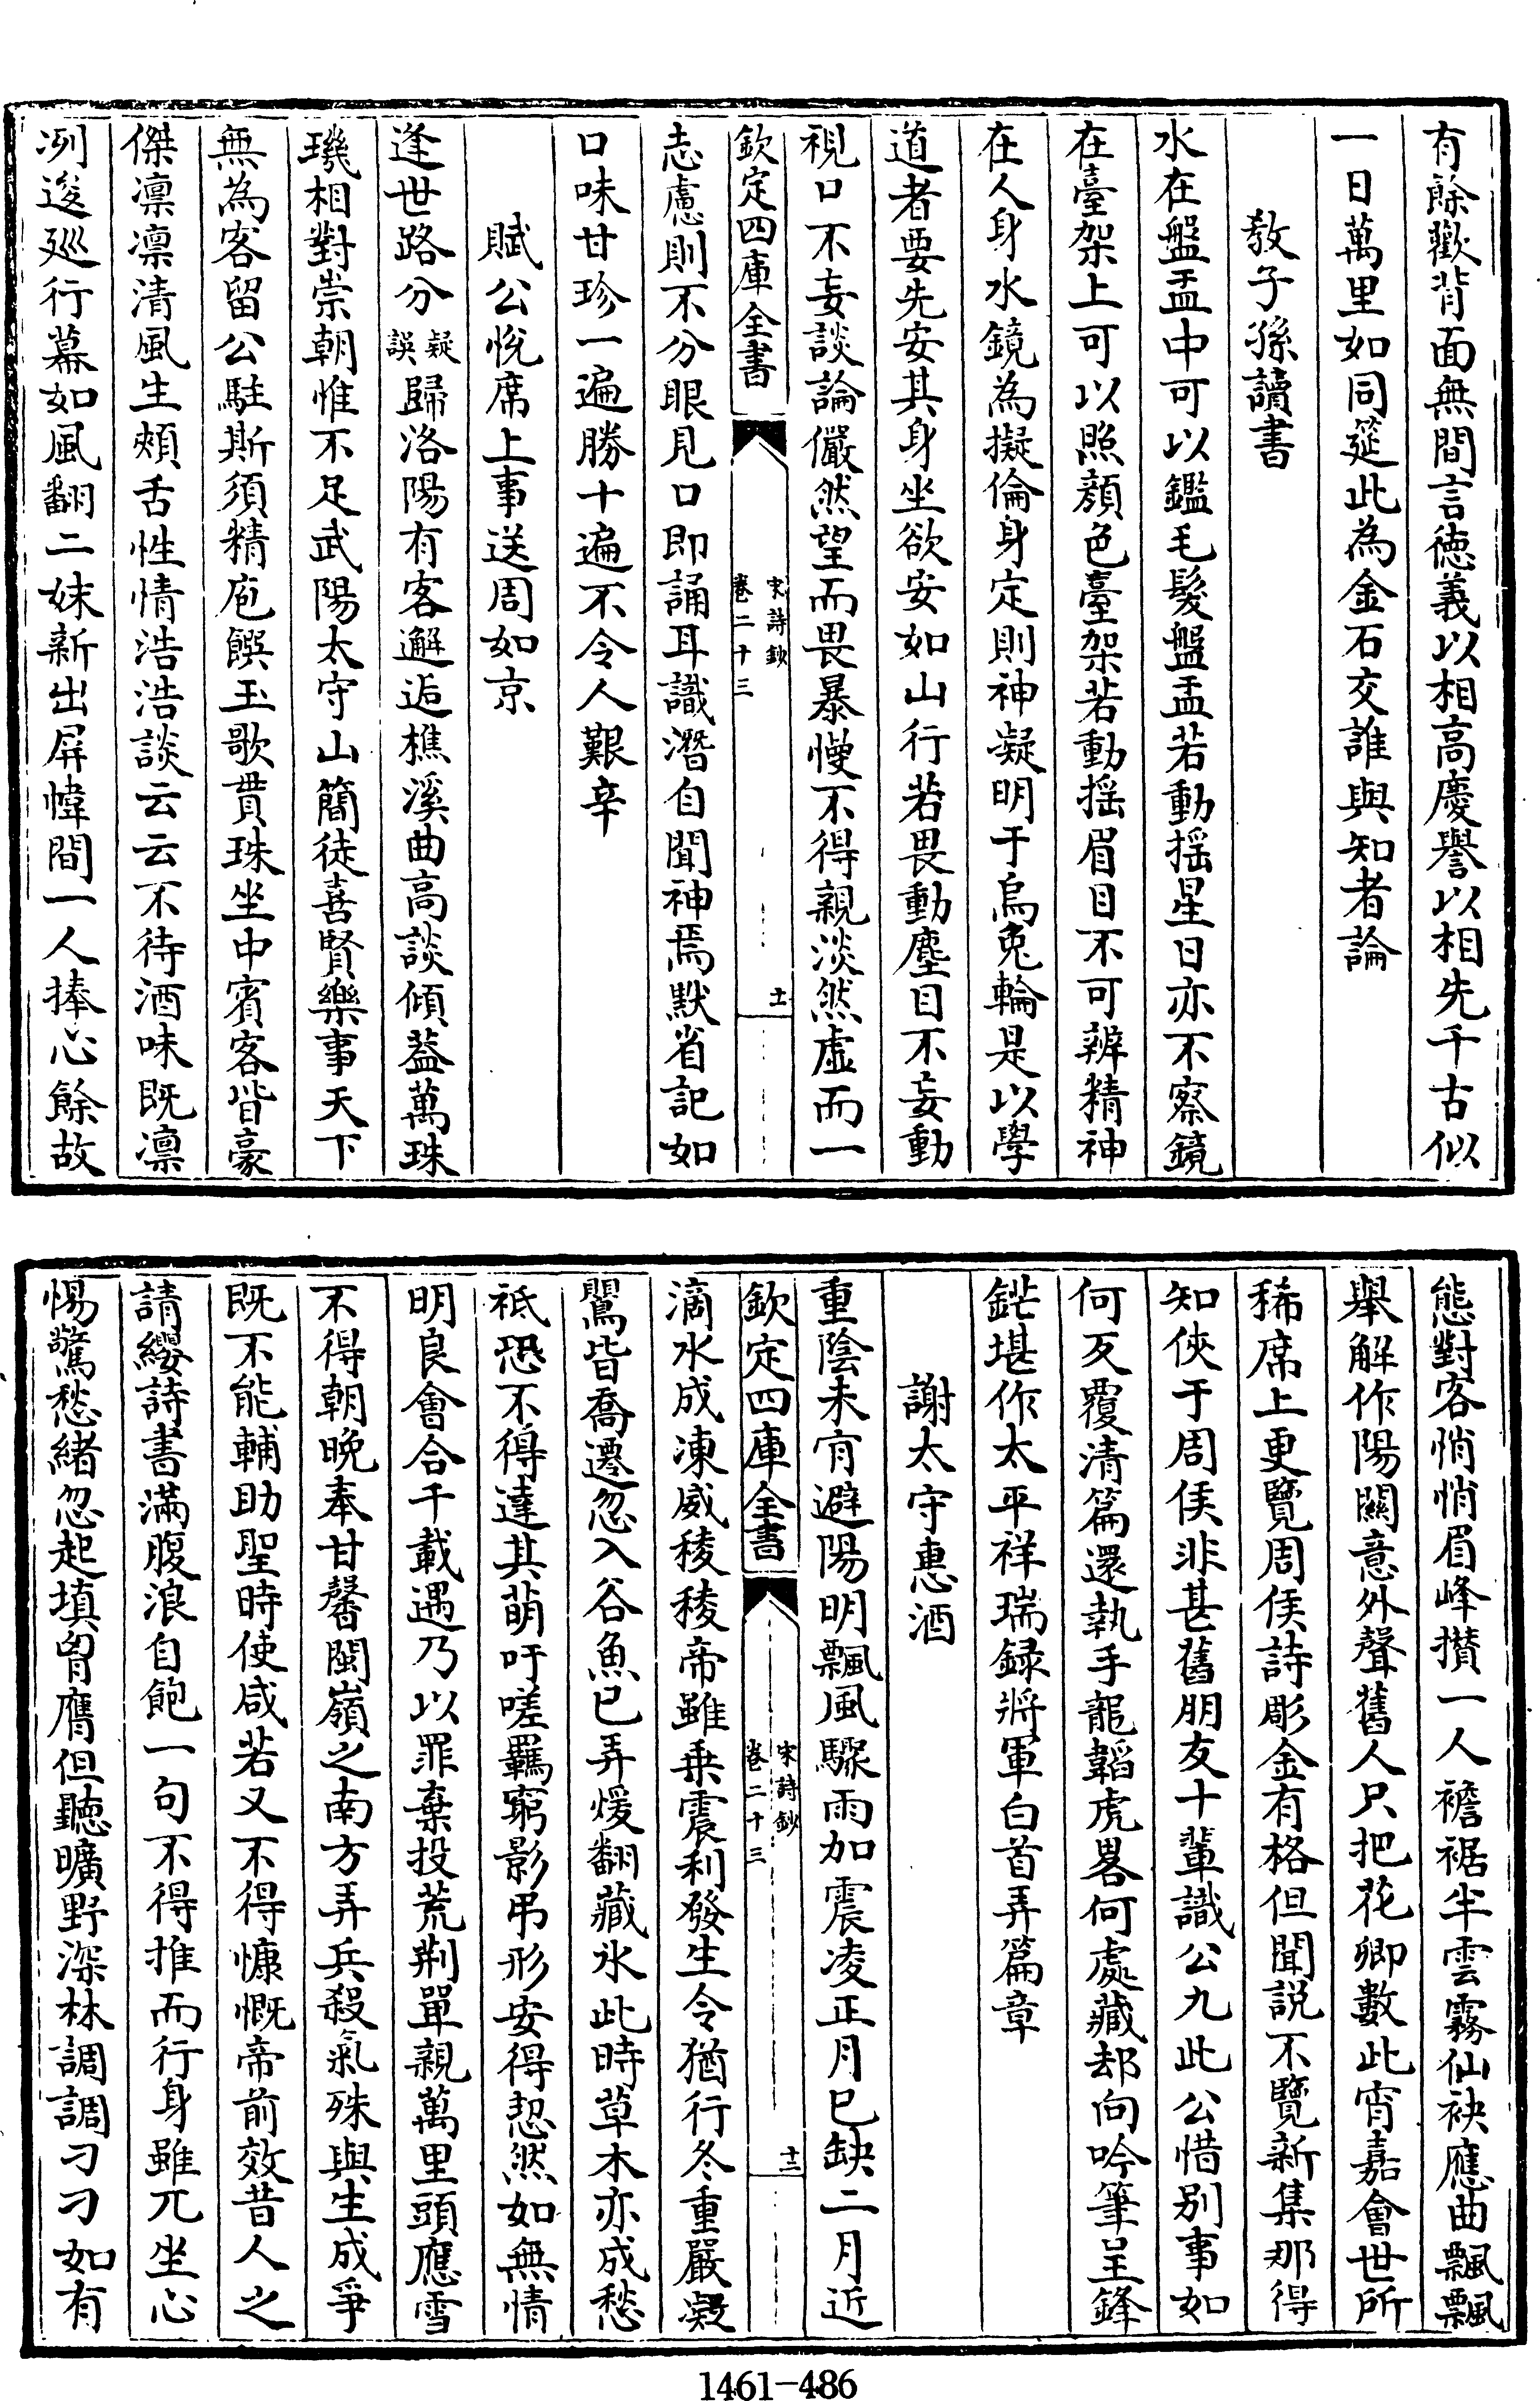 有餘歡背面無間言徳義以相高慶譽以相先千古似
一日萬里如同筵此為金石交誰與知者論
教子孫讀書
水在盤盂中可以鑑毛髮盤盂若動揺星日亦不察鏡
在臺架上可以照顔色臺架若動揺眉目不可辨精神
在人身水鏡為擬倫身定則神凝明于烏兔輪是以學
道者要先安其身坐欲安如山行若畏動塵目不妄動
視口不妄談論儼然望而畏暴慢不得親淡然虚而一
欽定四庫全書
宋詩鈔
卷二十三
十一
志慮則不分眼見口即誦耳識潛自聞神焉默省記如
口味甘珍一遍勝十遍不令人艱辛
賦公悅席上事送周如京
逢世路分疑誤歸洛陽有客邂逅樵溪曲高談傾葢萬珠
璣相對崇朝惟不足武陽太守山簡徒喜賢樂事天下
無為客留公駐斯須精庖饌玉歌貫珠坐中賓客皆豪
傑凛凛清風生頰舌性情浩浩談云云不待酒味既凛
冽逡廵行幕如風翻二妹新出屏幃間一人捧心餘故
態對客悄悄眉峰攅一人襜裾半雲霧仙袂應曲飄飄
舉解作陽闗意外聲舊人只把花卿數此宵嘉會世所
稀席上更覽周侯詩彫金有格但聞説不覽新集那得
知俠于周侯非甚舊朋友十輩識公九此公惜别事如
何反覆清篇還執手龍韜虎畧何處藏却向吟筆呈鋒
鋩堪作太平祥瑞録將軍白首弄篇章
謝太守惠酒
重陰未肯避陽明飄風驟雨加震凌正月已缺二月近
欽定四庫全書
宋詩鈔
卷二十三
十二
滴水成凍威稜稜帝雖乗震利發生令猶行冬重嚴凝
鸎皆喬遷忽入谷魚已弄煖翻藏氷此時草木亦成愁
祗恐不得達其萌吁嗟羈窮影弔形安得恝然如無情
明良會合千載遇乃以罪棄投荒荆單親萬里頭應雪
不得朝晚奉甘馨閩嶺之南方弄兵殺氣殊與生成爭
既不能輔助聖時使咸若又不得慷慨帝前效昔人之
請纓詩書滿腹浪自飽一句不得推而行身雖兀坐心
惕驚愁緒忽起填胷膺但聽曠野深林調調刁刁如有
1461-486